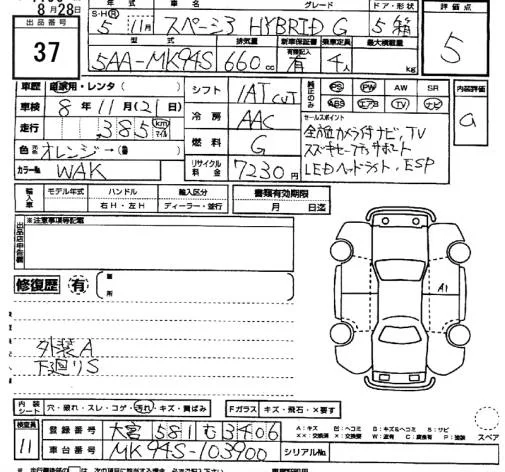 8月28日
年式 車名 グレード ドア・形状 評価点
出品番号
37
S・H・R 5年 11月 スペーシア HYBRID G 5 箱
5
型式 排気量 新車保証書 乗車定員 最大積載量
5AA-MK94S 660cc 有 4人 kg
車歴 自家用・レンタ シフト IAT CVT 純正のみ PS PW AW SR 内装評価
車検 8年11月(21日) 冷房 AAC ABS エアB TV ナビ
a
走行 385 km マイル セールスポイント
色 オレンジ→( ) 燃料 G 全方位カメラ付ナビ、TV
スズキセーフティサポート
カラーNo. WAK リサイクル料金 7230円 LEDヘッドライト、ESP
輸入車 モデル年式 ハンドル 輸入区分 書類有効期限
年 右H・左H ディーラー・並行 月 日迄
出品店申告欄 ※注意事項等記載
修復歴 有 箇所
A1
外装A
下廻りS
内装シート 穴・破れ・スレ・コゲ・汚れ・キズ・黄ばみ Fガラス キズ・飛石・×要す
A:キズ U:ヘコミ B:キズ&ヘコミ S:サビ
××:交換済 ×:交換要 W:波有 C:腐食有 P:塗装 スペア
検査員 11 登録番号 大宮 581 む 3406
車台番号 MK94S-103900 シリアルNo.